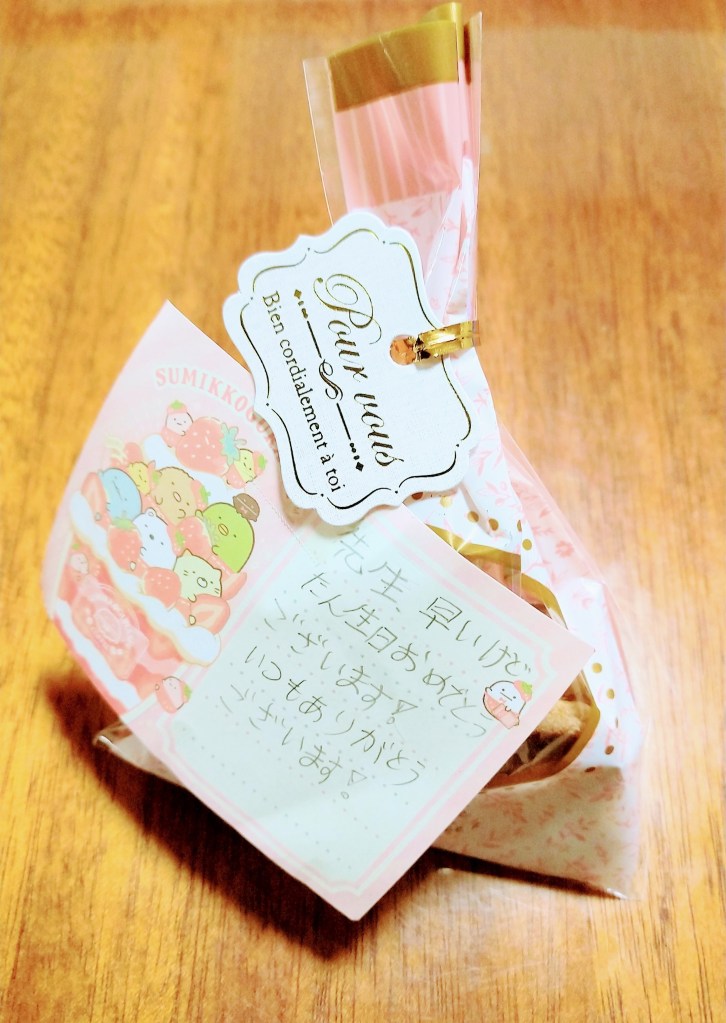 Pour vous
Bien cordialement à toi
SUMIKKO
先生、早いけど
たん生日おめでとう
ございます!
いつもありがとう
ございます!